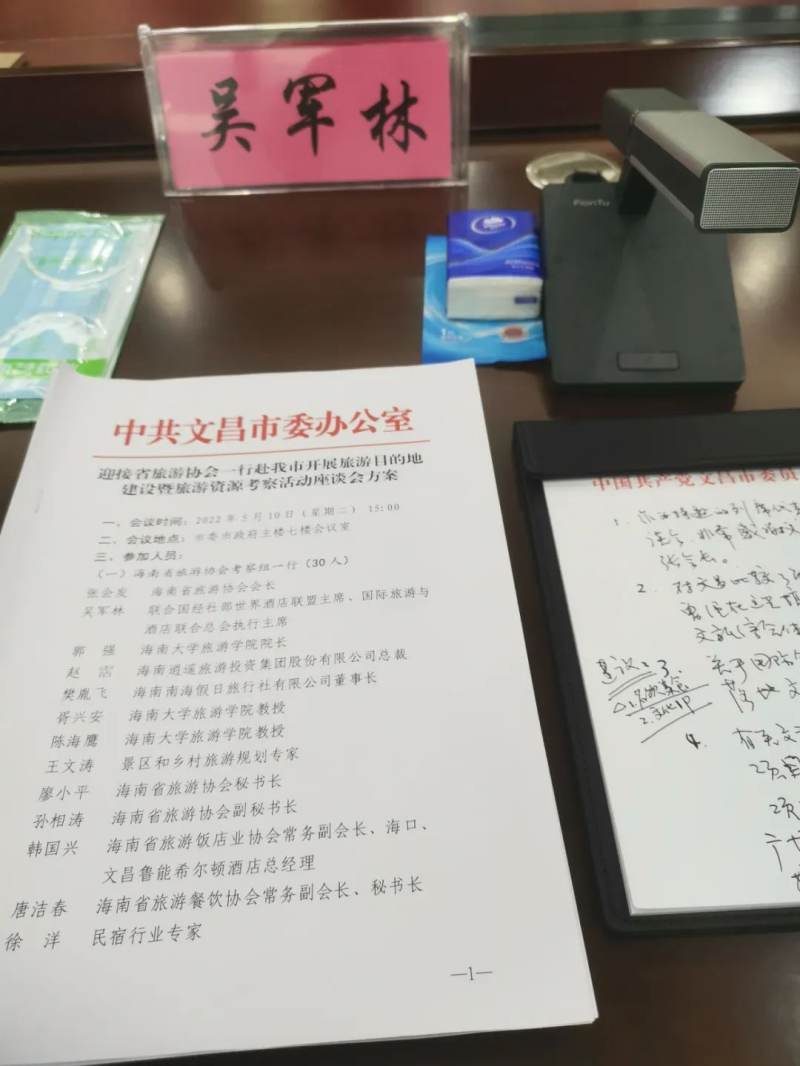 吴军林
FionTu
中共文昌市委办公室
迎接省旅游协会一行赴我市开展旅游目的地
建设暨旅游资源考察活动座谈会方案
一、会议时间：2022年5月10日（星期二）15:00
二、会议地点：市委市政府主楼七楼会议室
三、参加人员：
（一）海南省旅游协会考察组一行（30人）
张会发 海南省旅游协会会长
吴军林 联合国经社部世界酒店联盟主席、国际旅游与
酒店联合总会执行主席
郭 强 海南大学旅游学院院长
赵 海南逍遥旅游投资集团股份有限公司总裁
樊胤飞 海南南海假日旅行社有限公司董事长
胥兴安 海南大学旅游学院教授
陈海鹰 海南大学旅游学院教授
王文涛 景区和乡村旅游规划专家
廖小平 海南省旅游协会秘书长
孙相涛 海南省旅游协会副秘书长
韩国兴 海南省旅游饭店业协会常务副会长、海口、
文昌鲁能希尔顿酒店总经理
唐洁春 海南省旅游餐饮协会常务副会长、秘书长
徐 洋 民宿行业专家
—1—
中国共产党文昌市委员
1.
张会长。
2. 对文昌
建议：3. 关于国际
2.文化IP
4. 有关文